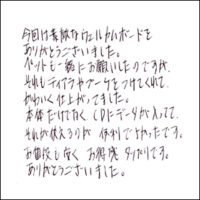 今回は素敵なウェルカムボードを
ありがとうございました。
ペットも一緒にお願いしたのですが、
それもティアラやブーケをつけてくれて、
かわいく仕上がってました。
本体だけでなく CDにデータが入ってて、
それが使えるのが 便利でよかったです。
お値段も安く お得感タップリです。
ありがとうございました。